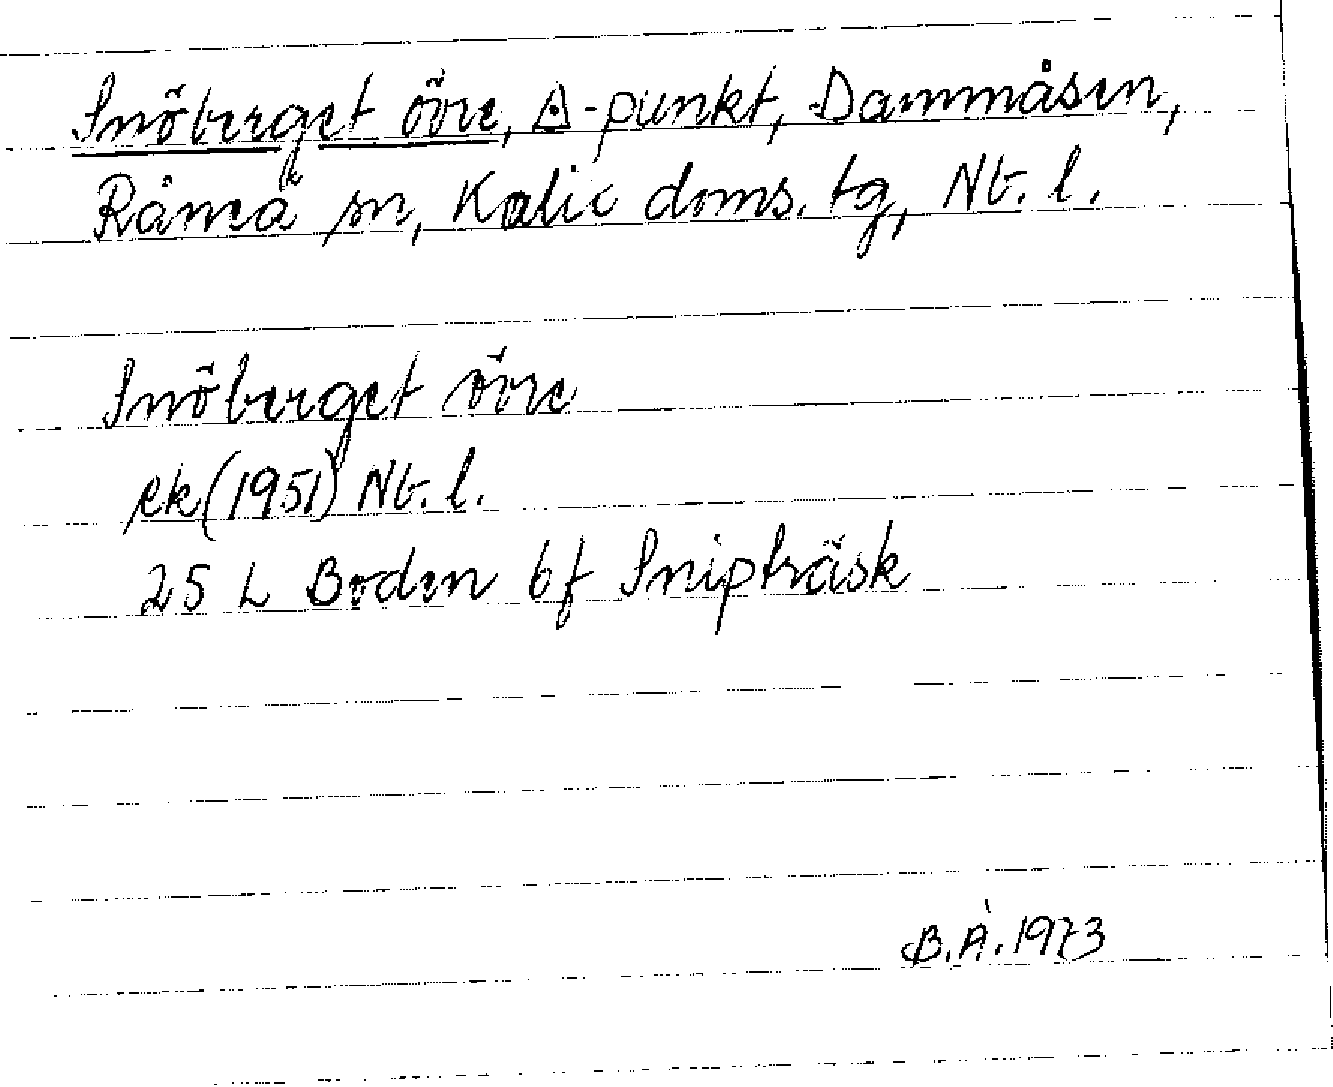 Snöberget övre, Δ-punkt, Dammåsen,
Råneå sn, Kalix doms. tg, Nb. l.
Snöberget övre
ek (1951) Nb. l.
25 L Boden bf Snipträsk
B.Å. 1973